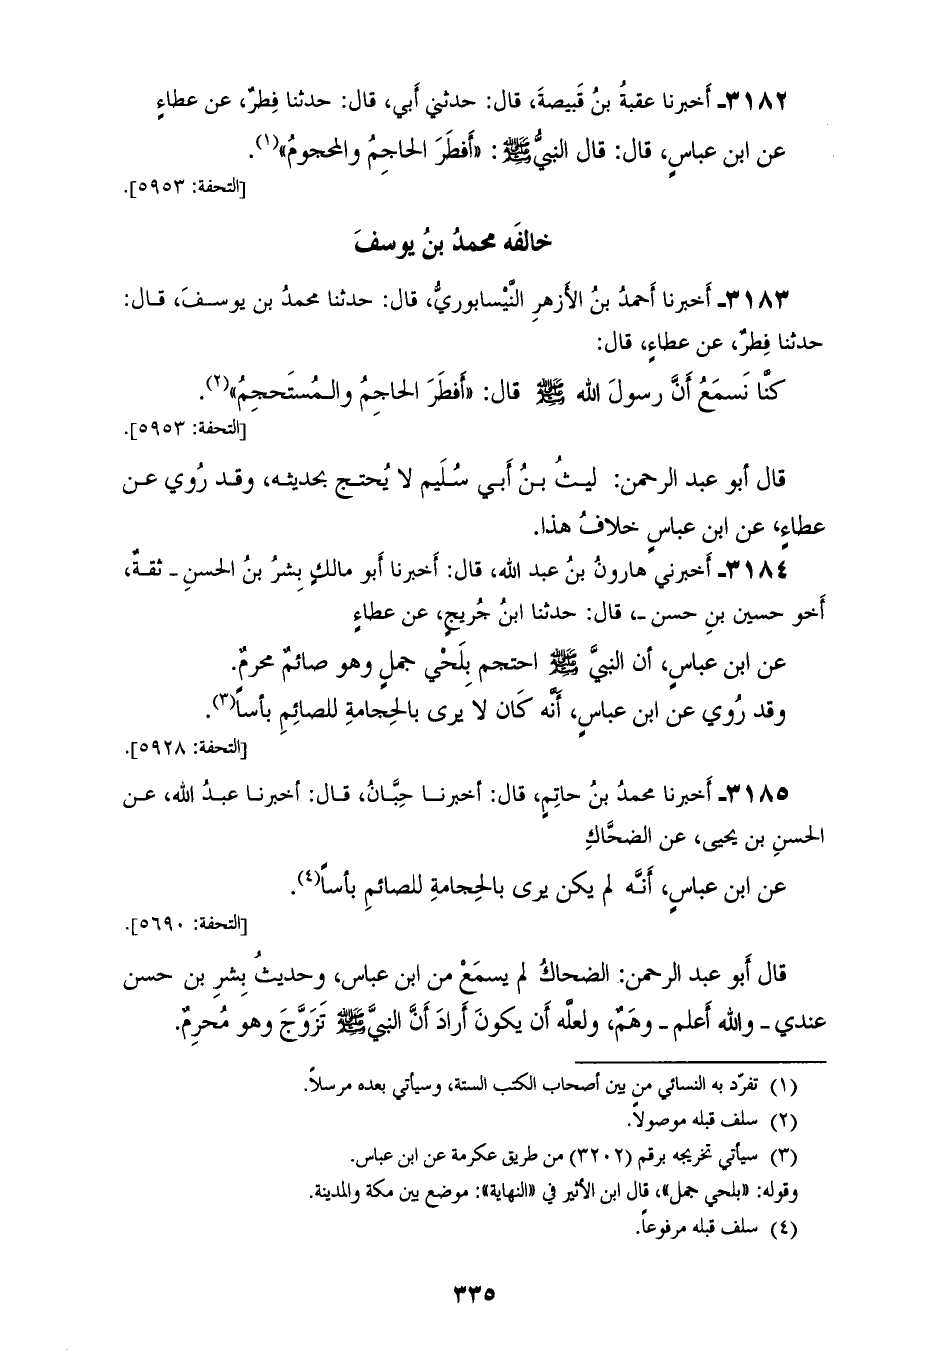 ٣١٨٢ـ أَخبرنا عقبةُ بنُ قَبيصةَ، قال: حدثني أَبي، قال: حدثنا فِطرٌ، عن عطاءٍ
عن ابن عباسٍ، قال: قال النبيُّ ﷺ: «أَفطَرَ الحاجِمُ والمحجومُ»(١).
[التحفة: ٥٩٥٣].
خالفَه محمدُ بنُ يوسفَ
٣١٨٣ـ أَخبرنا أَحمدُ بنُ الأَزهرِ النَّيْسابوريُّ، قال: حدثنا محمدُ بن يوسفَ، قال:
حدثنا فِطرٌ، عن عطاءٍ، قال:
كنَّا نَسمَعُ أَنَّ رسولَ الله ﷺ قال: «أَفطَرَ الحاجِمُ والمُستَحجِمُ»(٢).
[التحفة: ٥٩٥٣].
قال أبو عبد الرحمن: ليثُ بنُ أَبي سُلَيم لا يُحتج بحديثه، وقد رُوي عن
عطاءٍ، عن ابن عباسٍ خلافُ هذا.
٣١٨٤ـ أَخبرني هارونُ بنُ عبد الله، قال: أَخبرنا أَبو مالكٍ بِشرُ بنُ الحسنِ ـ ثقةٌ،
أَخو حسين بنِ حسن ـ، قال: حدثنا ابنُ جُريجٍ، عن عطاءٍ
عن ابن عباسٍ، أن النبيَّ ﷺ احتجم بِلَحْي جملٍ وهو صائمٌ محرمٌ.
وقد رُوي عن ابن عباسٍ، أَنَّه كَان لا يرى بالحِجامةِ للصائِمِ بأساً(٣).
[التحفة: ٥٩٢٨].
٣١٨٥ـ أَخبرنا محمدُ بنُ حاتِمٍ، قال: أخبرنا حِبَّانُ، قال: أخبرنا عبدُ الله، عن
الحسنِ بن يحيى، عن الضحَّاكِ
عن ابن عباسٍ، أَنَّه لم يكن يرى بالحِجامةِ للصائمِ بأساً(٤).
[التحفة: ٥٦٩٠].
قال أَبو عبد الرحمن: الضحاكُ لم يسمَعْ من ابن عباس، وحديثُ بِشرِ بن حسن
عندي ـ والله أَعلم ـ وهَمٌ، ولعلَّه أن يكونَ أَرادَ أَنَّ النبيَّ ﷺ تَزَوَّجَ وهو مُحرِمٌ.
(١) تفرّد به النسائي من بين أصحاب الكتب الستة، وسيأتي بعده مرسلاً.
(٢) سلف قبله موصولاً.
(٣) سيأتي تخريجه برقم (٣٢٠٢) من طريق عكرمة عن ابن عباس.
وقوله: «بلحي جمل»، قال ابن الأثير في «النهاية»: موضع بين مكة والمدينة.
(٤) سلف قبله مرفوعاً.
٣٣٥